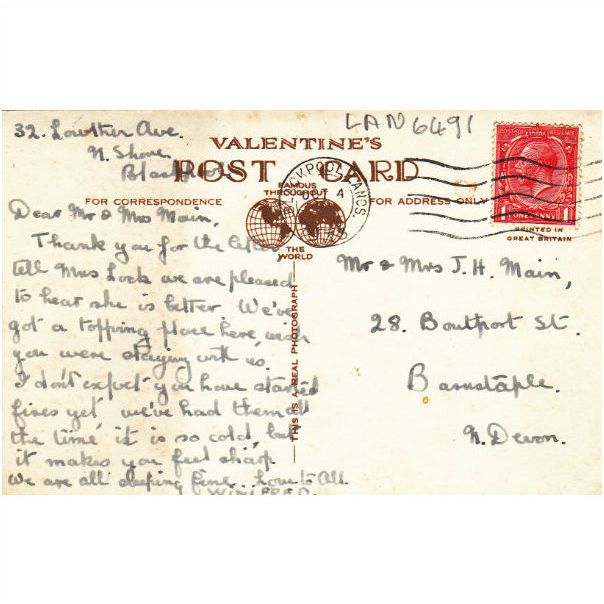 32. Lowther Ave.
N. Shore,
Blackpool
LAN 6491
VALENTINE'S
POST CARD
FAMOUS
THROUGHOUT
THE
WORLD
FOR CORRESPONDENCE
FOR ADDRESS ONLY
BLACKPOOL LANCS
OC 4
POSTAGE REVENUE
ONE PENNY
PRINTED IN
GREAT BRITAIN
THIS IS A REAL PHOTOGRAPH
Dear Mr & Mrs Main,
Thank you for the letter
tell Mrs Lock we are pleased
to hear she is better. We've
got a topping place here, wish
you were staying with us.
I don't expect you have started
fires yet, we've had them all
the time, it is so cold, but
it makes you feel sharp
We are all sleeping fine.. Love to All.
WINIFRED.
Mr & Mrs J. H. Main,
28. Boutport St.
Barnstaple.
N. Devon.